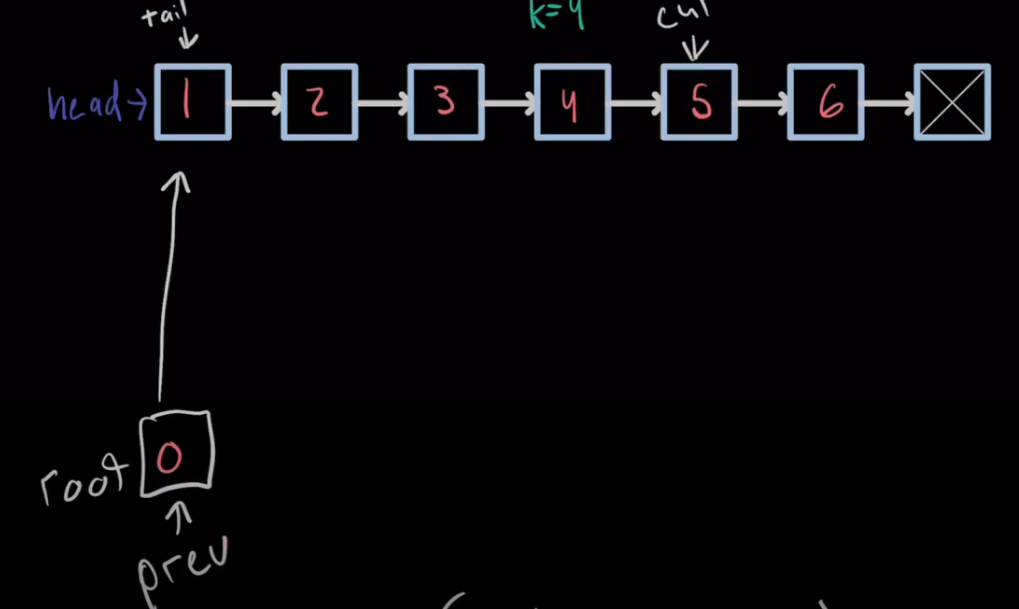 tail
k=4
cur
head
1 2 3 4 5 6
0
root
prev